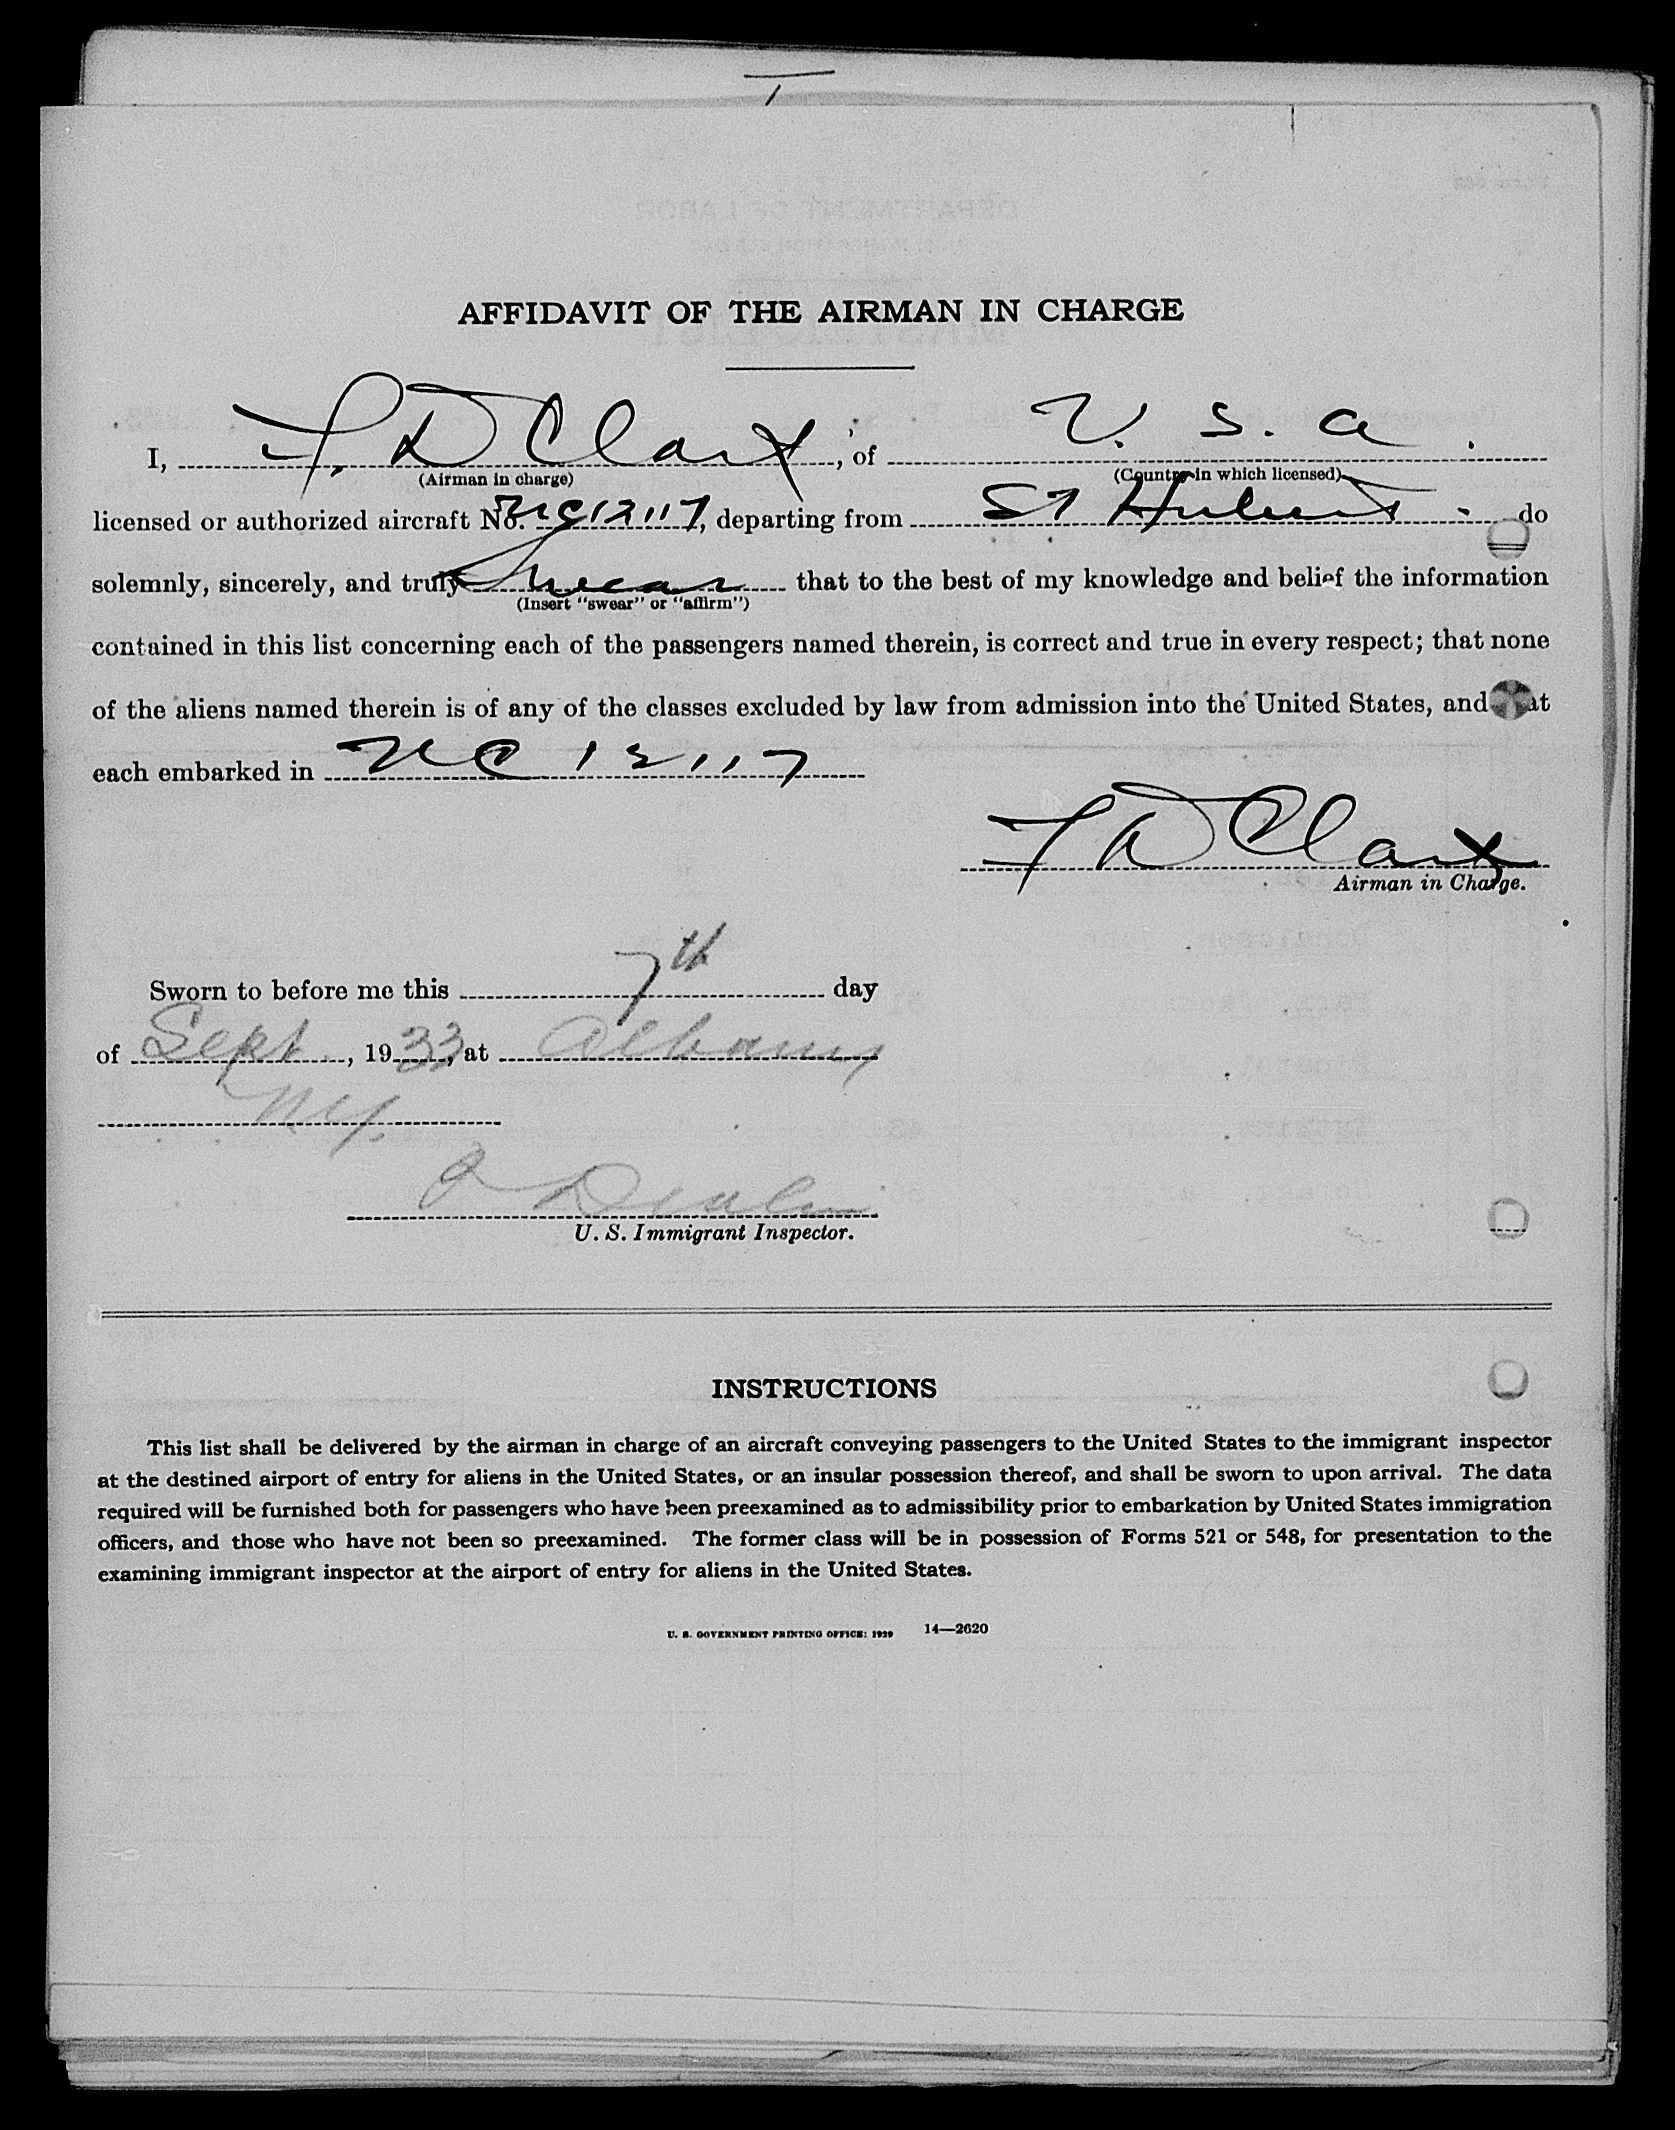 AFFIDAVIT OF THE AIRMAN IN CHARGE
I, F. D Clark, of U. S. A.
(Airman in charge) (Country in which licensed)
licensed or authorized aircraft No. NC12117, departing from St Hubert. do
solemnly, sincerely, and truly swear that to the best of my knowledge and belief the information
(Insert "swear" or "affirm")
contained in this list concerning each of the passengers named therein, is correct and true in every respect; that none
of the aliens named therein is of any of the classes excluded by law from admission into the United States, and that
each embarked in NC 12117
F D Clark
Airman in Charge.
Sworn to before me this 7th day
of Sept, 1933, at Albany
NY.
U. S. Immigrant Inspector.
INSTRUCTIONS
This list shall be delivered by the airman in charge of an aircraft conveying passengers to the United States to the immigrant inspector
at the destined airport of entry for aliens in the United States, or an insular possession thereof, and shall be sworn to upon arrival. The data
required will be furnished both for passengers who have been preexamined as to admissibility prior to embarkation by United States immigration
officers, and those who have not been so preexamined. The former class will be in possession of Forms 521 or 548, for presentation to the
examining immigrant inspector at the airport of entry for aliens in the United States.
U. S. GOVERNMENT PRINTING OFFICE: 1929 14—2620